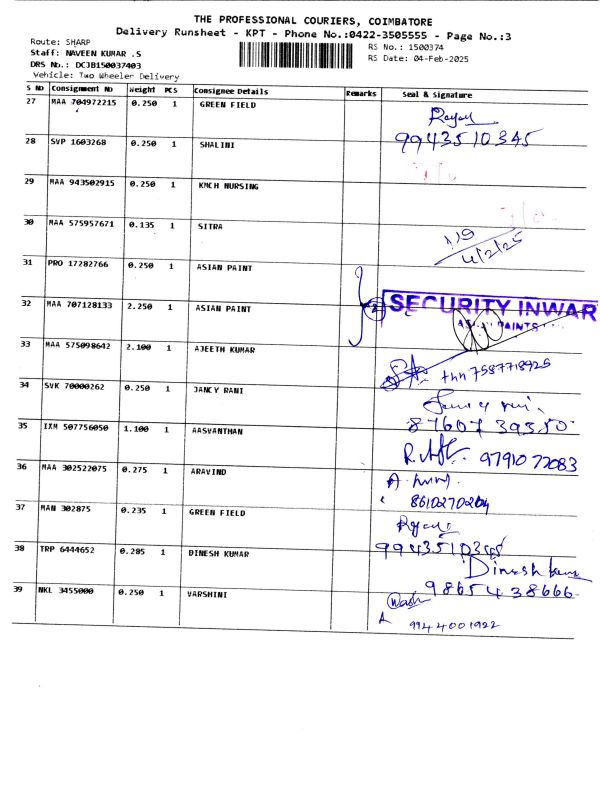 THE PROFESSIONAL COURIERS, COIMBATORE
Delivery Runsheet - KPT - Phone No.:0422-3505555 - Page No.:3
Route: SHARP
RS No.: 1500374
Staff: NAVEEN KUMAR .S
RS Date: 04-Feb-2025
DRS No.: DCJB150037403
Vehicle: Two Wheeler Delivery
S No Consignment No Weight PCS Consignee Details Remarks Seal & Signature
27 MAA 704972215 0.250 1 GREEN FIELD
9943510345
28 SVP 1603268 0.250 1 SHALINI
29 MAA 943502915 0.250 1 KMCH NURSING
30 MAA 575957671 0.135 1 SITRA
4/2/25
31 PRO 17282766 0.250 1 ASIAN PAINT
32 MAA 707128133 2.250 1 ASIAN PAINT 2 SECURITY INWAR
ASIAN PAINTS
33 MAA 575098642 2.100 1 AJEETH KUMAR
7587718925
34 SVK 70000262 0.250 1 JANCY RANI
8760739350
35 IXM 507756050 1.100 1 AASVANTHAN
9791072083
36 MAA 302522075 0.275 1 ARAVIND
8610270204
37 MAN 302875 0.235 1 GREEN FIELD
9943510345
38 TRP 6444652 0.285 1 DINESH KUMAR
Dinesh
9865438666
39 NKL 3455000 0.250 1 VARSHINI
9944001922